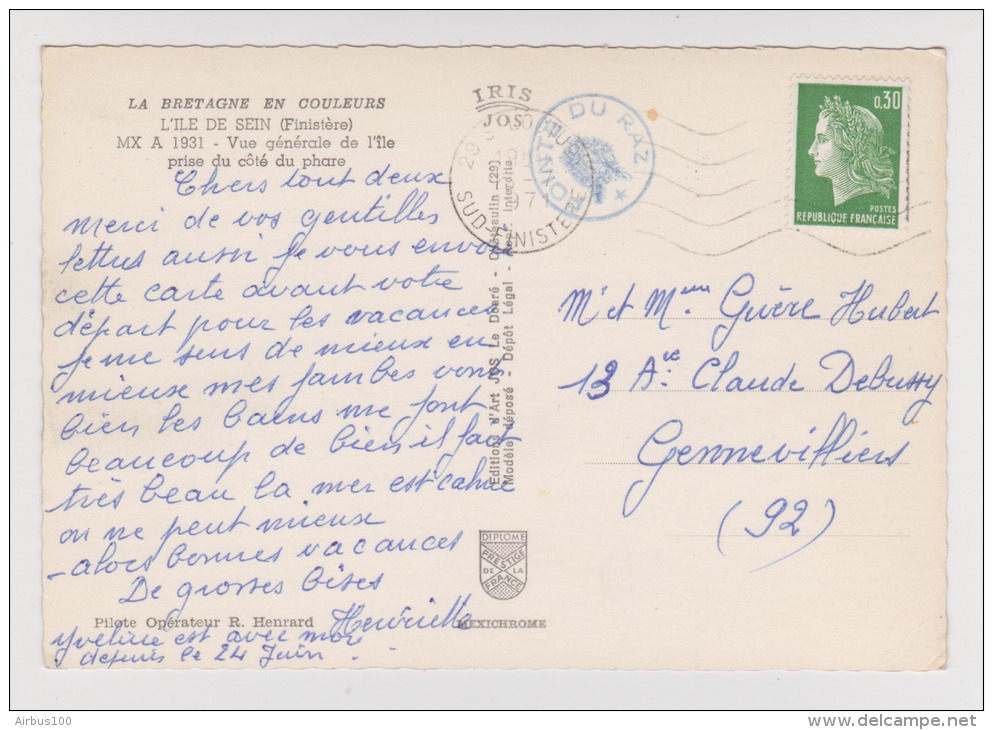 LA BRETAGNE EN COULEURS
L'ILE DE SEIN (Finistère)
MX A 1931 - Vue générale de l'île
prise du côté du phare
Chers tout deux
merci de vos gentilles
lettres aussi je vous envoi
cette carte avant votre
départ pour les vacances
je me sens de mieux en
mieux mes jambes vons
bien les bains me font
beaucoup de bien il fait
très beau la mer est calme
on ne peut mieux
- alors bonnes vacances
De grosses bises
Henriette
Yveline est avec moi
depuis le 24 Juin.
Pilote Opérateur R. Henrard
MEXICHROME
IRIS
JOS
Editions d'Art JOS Le Doaré - Châteaulin (29)
Modèle déposé - Dépôt Légal - Repr. Interdite
DIPLOME
PRESTIGE
DE LA
FRANCE
SUD-FINISTERE
POINTE DU RAZ
0,30
POSTES
REPUBLIQUE FRANÇAISE
Mr et Mme Guère Hubert
13 Ave Claude Debussy
Gennevilliers
(92)
Airbus100
delcampe.net